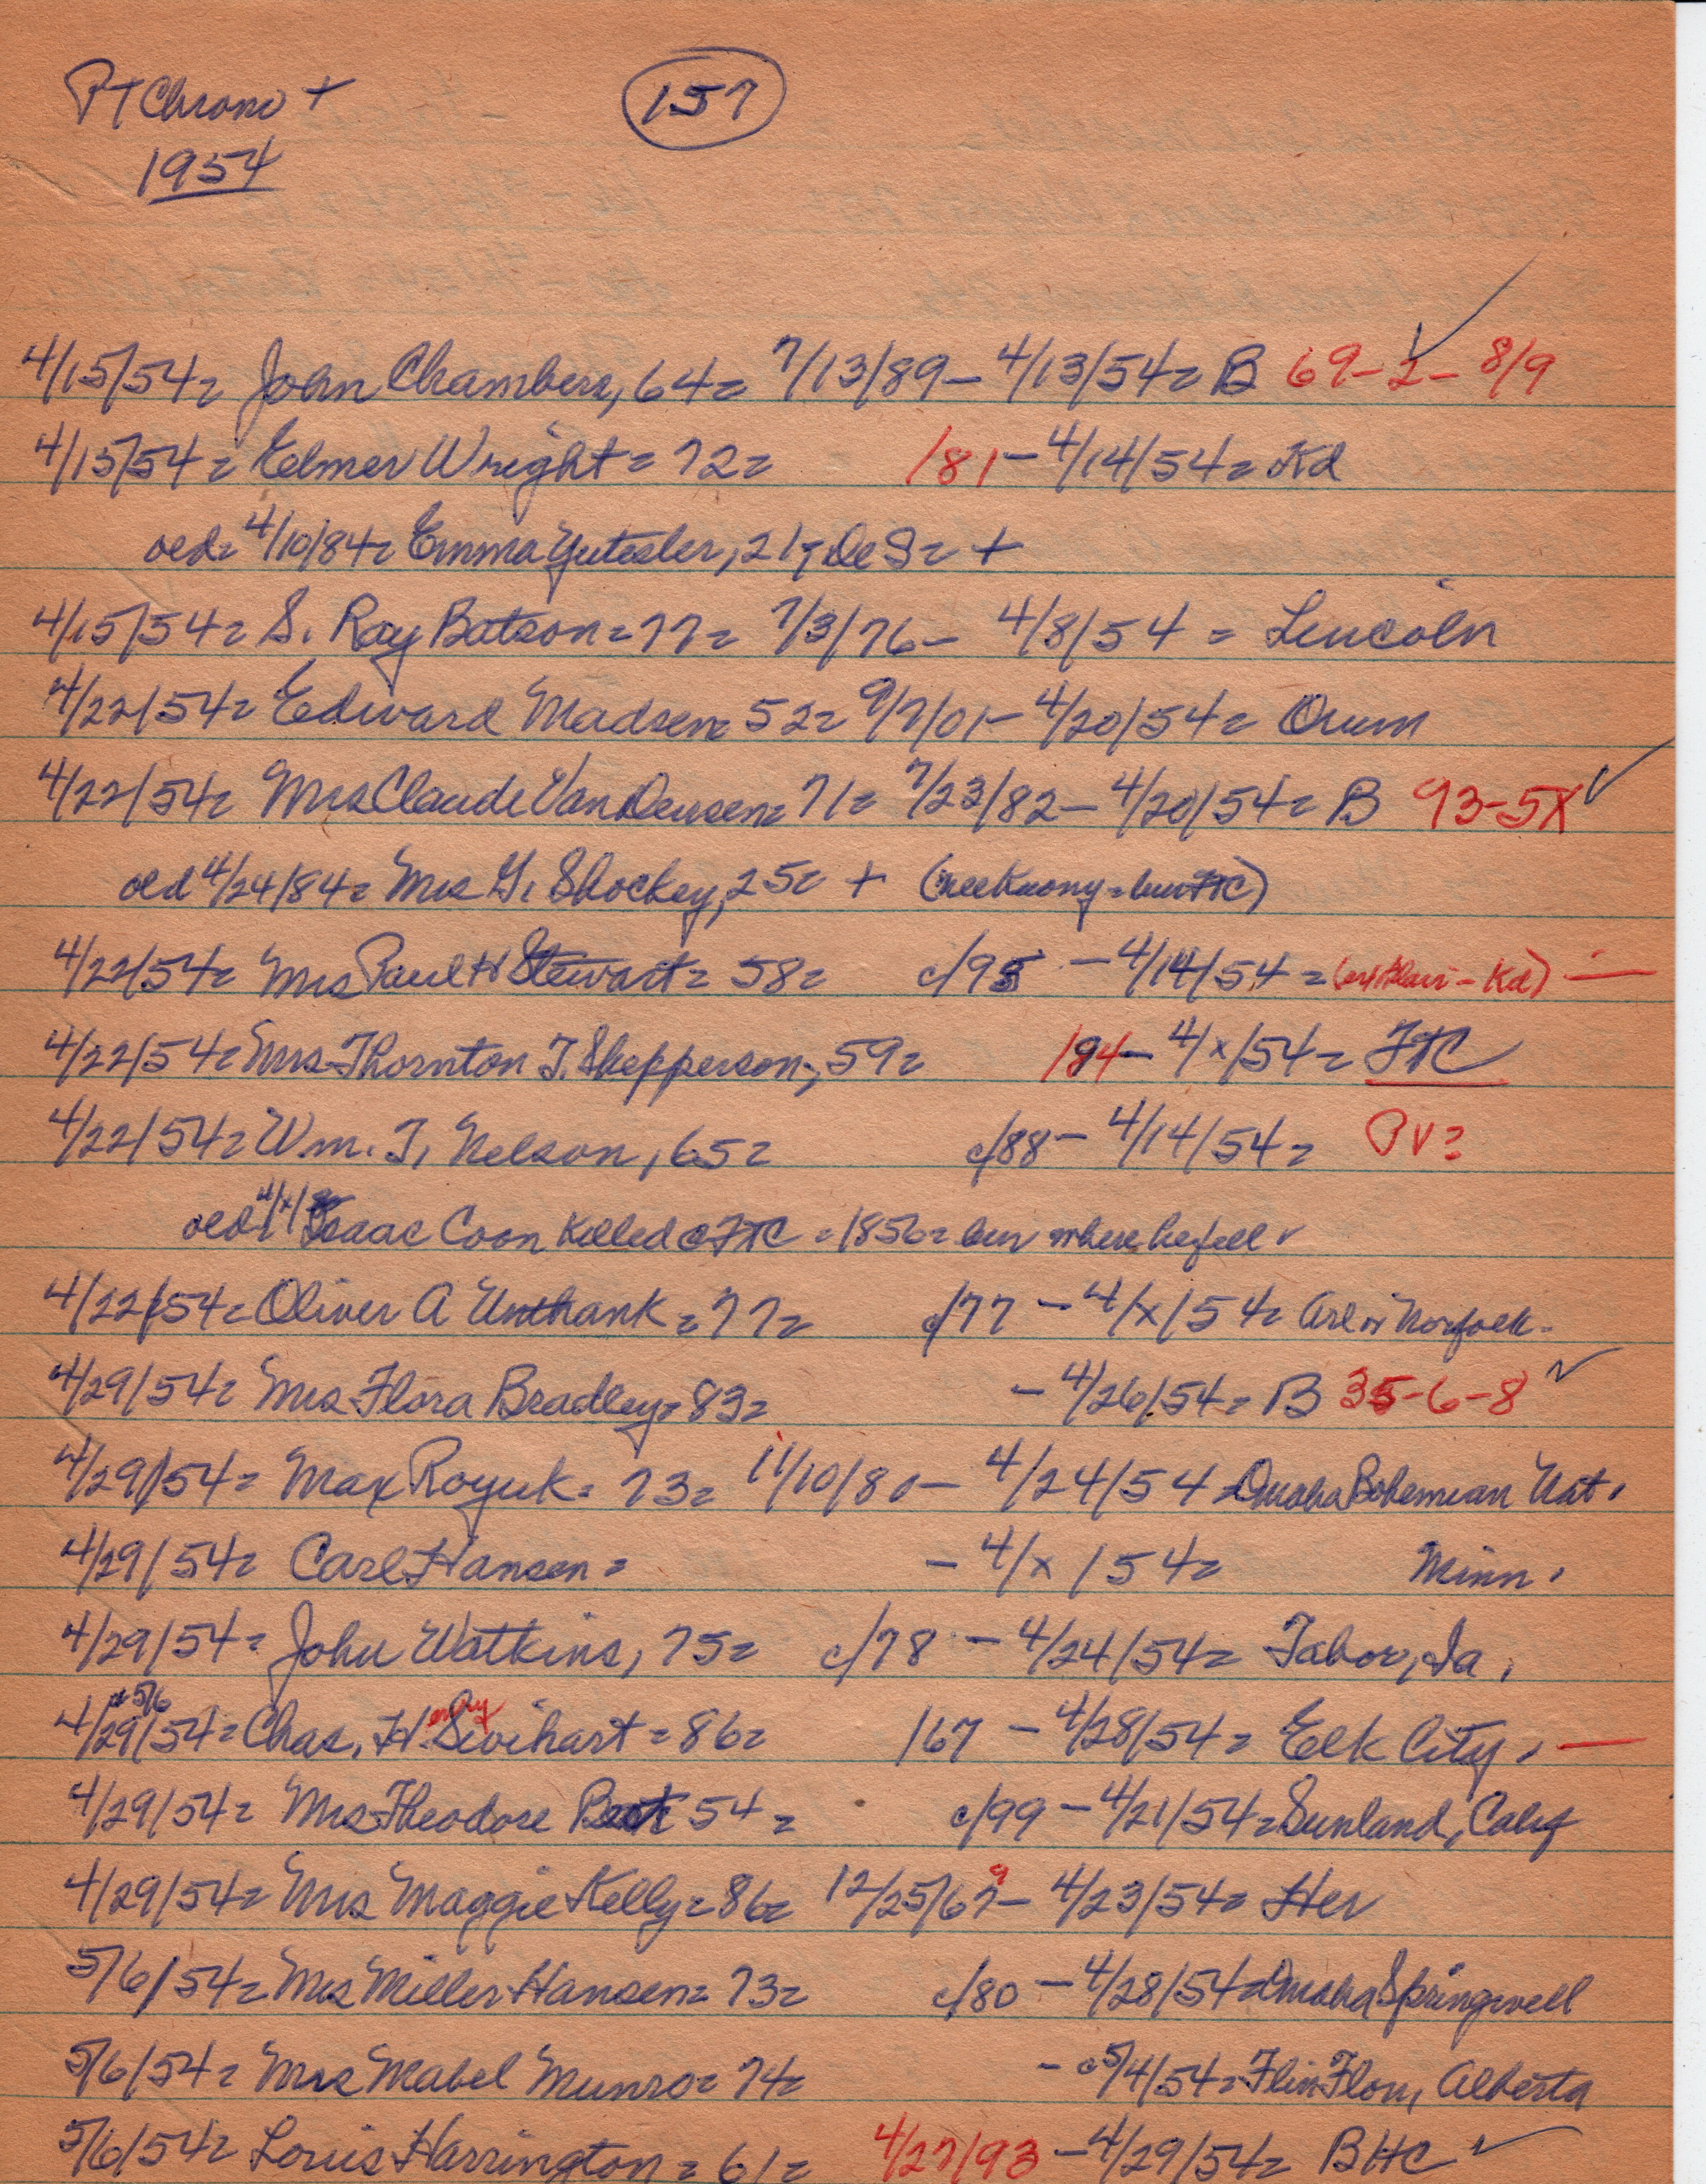 PT Chrono + 157
1954
4/15/54= John Chambers, 64= 7/13/89- 4/13/54= B 69-2-8/9
4/15/54= Elmer Wright=72= /81-4/14/54= Kd
oed= 4/10/84= Emma 21, De S= +
4/15/54= S. Ray Batson=77= 7/3/76- 4/8/54 = Lincoln
4/22/54= Edward Madsen= 52= 9/7/01- 4/20/54= Orum
4/22/54= Mrs Claude VanDeusen= 71= 7/23/82- 4/20/54= B 93-5X
oed 4/24/84= Mrs G. Shockey, 25= + (nee Kuony=bur FTC)
4/22/54= Mrs Paul H Stewart= 58= c/95 -4/14/54 = Blair - Kd) -
4/22/54= Mrs Thornton T. Shepperson, 59= /94- 4/x/54= FTC
4/22/54= Wm. T. Nelson, 65= c/88- 4/14/54= PV?
oed= Isaac Coon Killed @ FTC =1856= bur where he fell
4/22/54= Oliver A Unthank =77= c/77 - 4/x/54= Arl or Norfolk.
4/29/54= Mrs Flora Bradley=83= - 4/26/54= B 35-6-8
4/29/54= Max Royuk= 73= 11/10/80- 4/24/54 =Omaha Bohemian Nat.
4/29/54= Carl Hansen= - 4/x/54= Minn.
4/29/54= John Watkins, 75= c/78 - 4/24/54= Tabor, Ia.
4/29/54= Chas. Henry Swihart = 86= /67 - 4/28/54= Elk City. -
4/29/54= Mrs Theodore 54 = c/99 -4/21/54=Sunland, Calif
4/29/54= Mrs Maggie Kelly=86= 12/25/67- 4/23/54= Her
5/6/54= Mrs Miller Hansen= 73= c/80 -4/28/54=Omaha Springwell
5/6/54= Mrs Mabel Munro= 74= - c5/4/54= Flin Flon, Alberta
5/6/54= Louis Harrington = 61= 4/27/93 -4/29/54= BHC